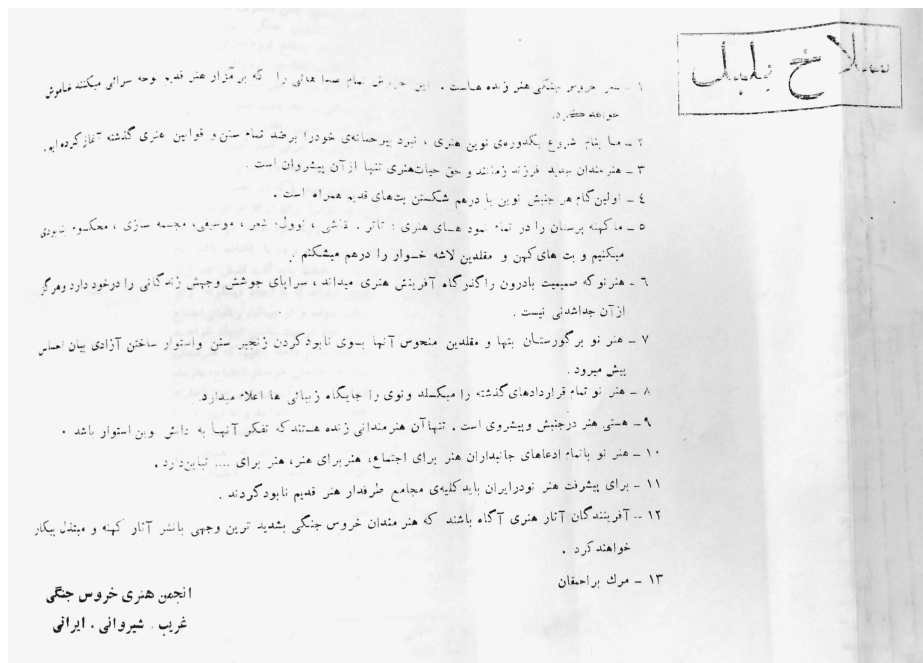 سلاخ بلبل
۱ - هنر خروس جنگی هنر زنده هاست . این خروش تمام صداهائی را که بر مزار هنر قدیم نوحه سرائی میکنند خاموش
خواهد کرد.
۲ - ما بنام شروع یکدوره‌ی نوین هنری ، نبرد بیرحمانه‌ی خودرا برضد تمام سنن و قوانین هنری گذشته آغاز کرده ایم.
۳ - هنرمندان جدید فرزند زمانند و حق حیات هنری تنها از آن پیشروان است .
٤ - اولین گام هر جنبش نوین با درهم شکستن بت‌های قدیم همراه است .
۵ - ما کهنه پرستان را در تمام نمود هـای هنری : تاتر . نقاشی ، نوول، شعر ، موسیقی، مجسمه سازی ، محکـوم بنابودی
میکنیم و بت های کهن و مقلدین لاشه خـوار را درهم میشکنم .
٦ - هنرنوکه صمیمیت بادرون را گذرگاه آفرینش هنری میداند ، سراپای جوشش وجهش زندگانی را درخود دارد وهرگز
از آن جداشدنی نیست .
۷ - هنر نو برگورستـان بتها و مقلدین منحوس آنها بسوی نابودکردن زنجیر سنن واستوار ساختن آزادی بیان احساس
پیش میرود .
۸ - هنر نو تمام قراردادهای گذشته را میکسلد ونوی را جایگاه زیبائی ها اعلام میدارد.
۹ - هستی هنر درجنبش وپیشروی است . تنها آن هنرمندانی زنده هستندکه تفکر آنها به دانش نوین استوار باشد .
۱۰ - هنر نو باتمام ادعاهای جانبداران هنر برای اجتماع، هنربرای هنر، هنر برای .... تباین‌دارد .
۱۱ - برای پیشرفت هنر نودرایران بایدکلیه‌ی مجامع طرفدار هنر قدیم نابودگردند .
۱۲ - آفرینندگان آثار هنری آگاه باشند که هنرمندان خروس جنگی بشدید ترین وجهی بانشر آثار کهنه و مبتذل پیکار
خواهندکرد .
۱۳ - مرك براحمقان
انجمن هنری خروس جنگی
غریب . شیروانی . ایرانی